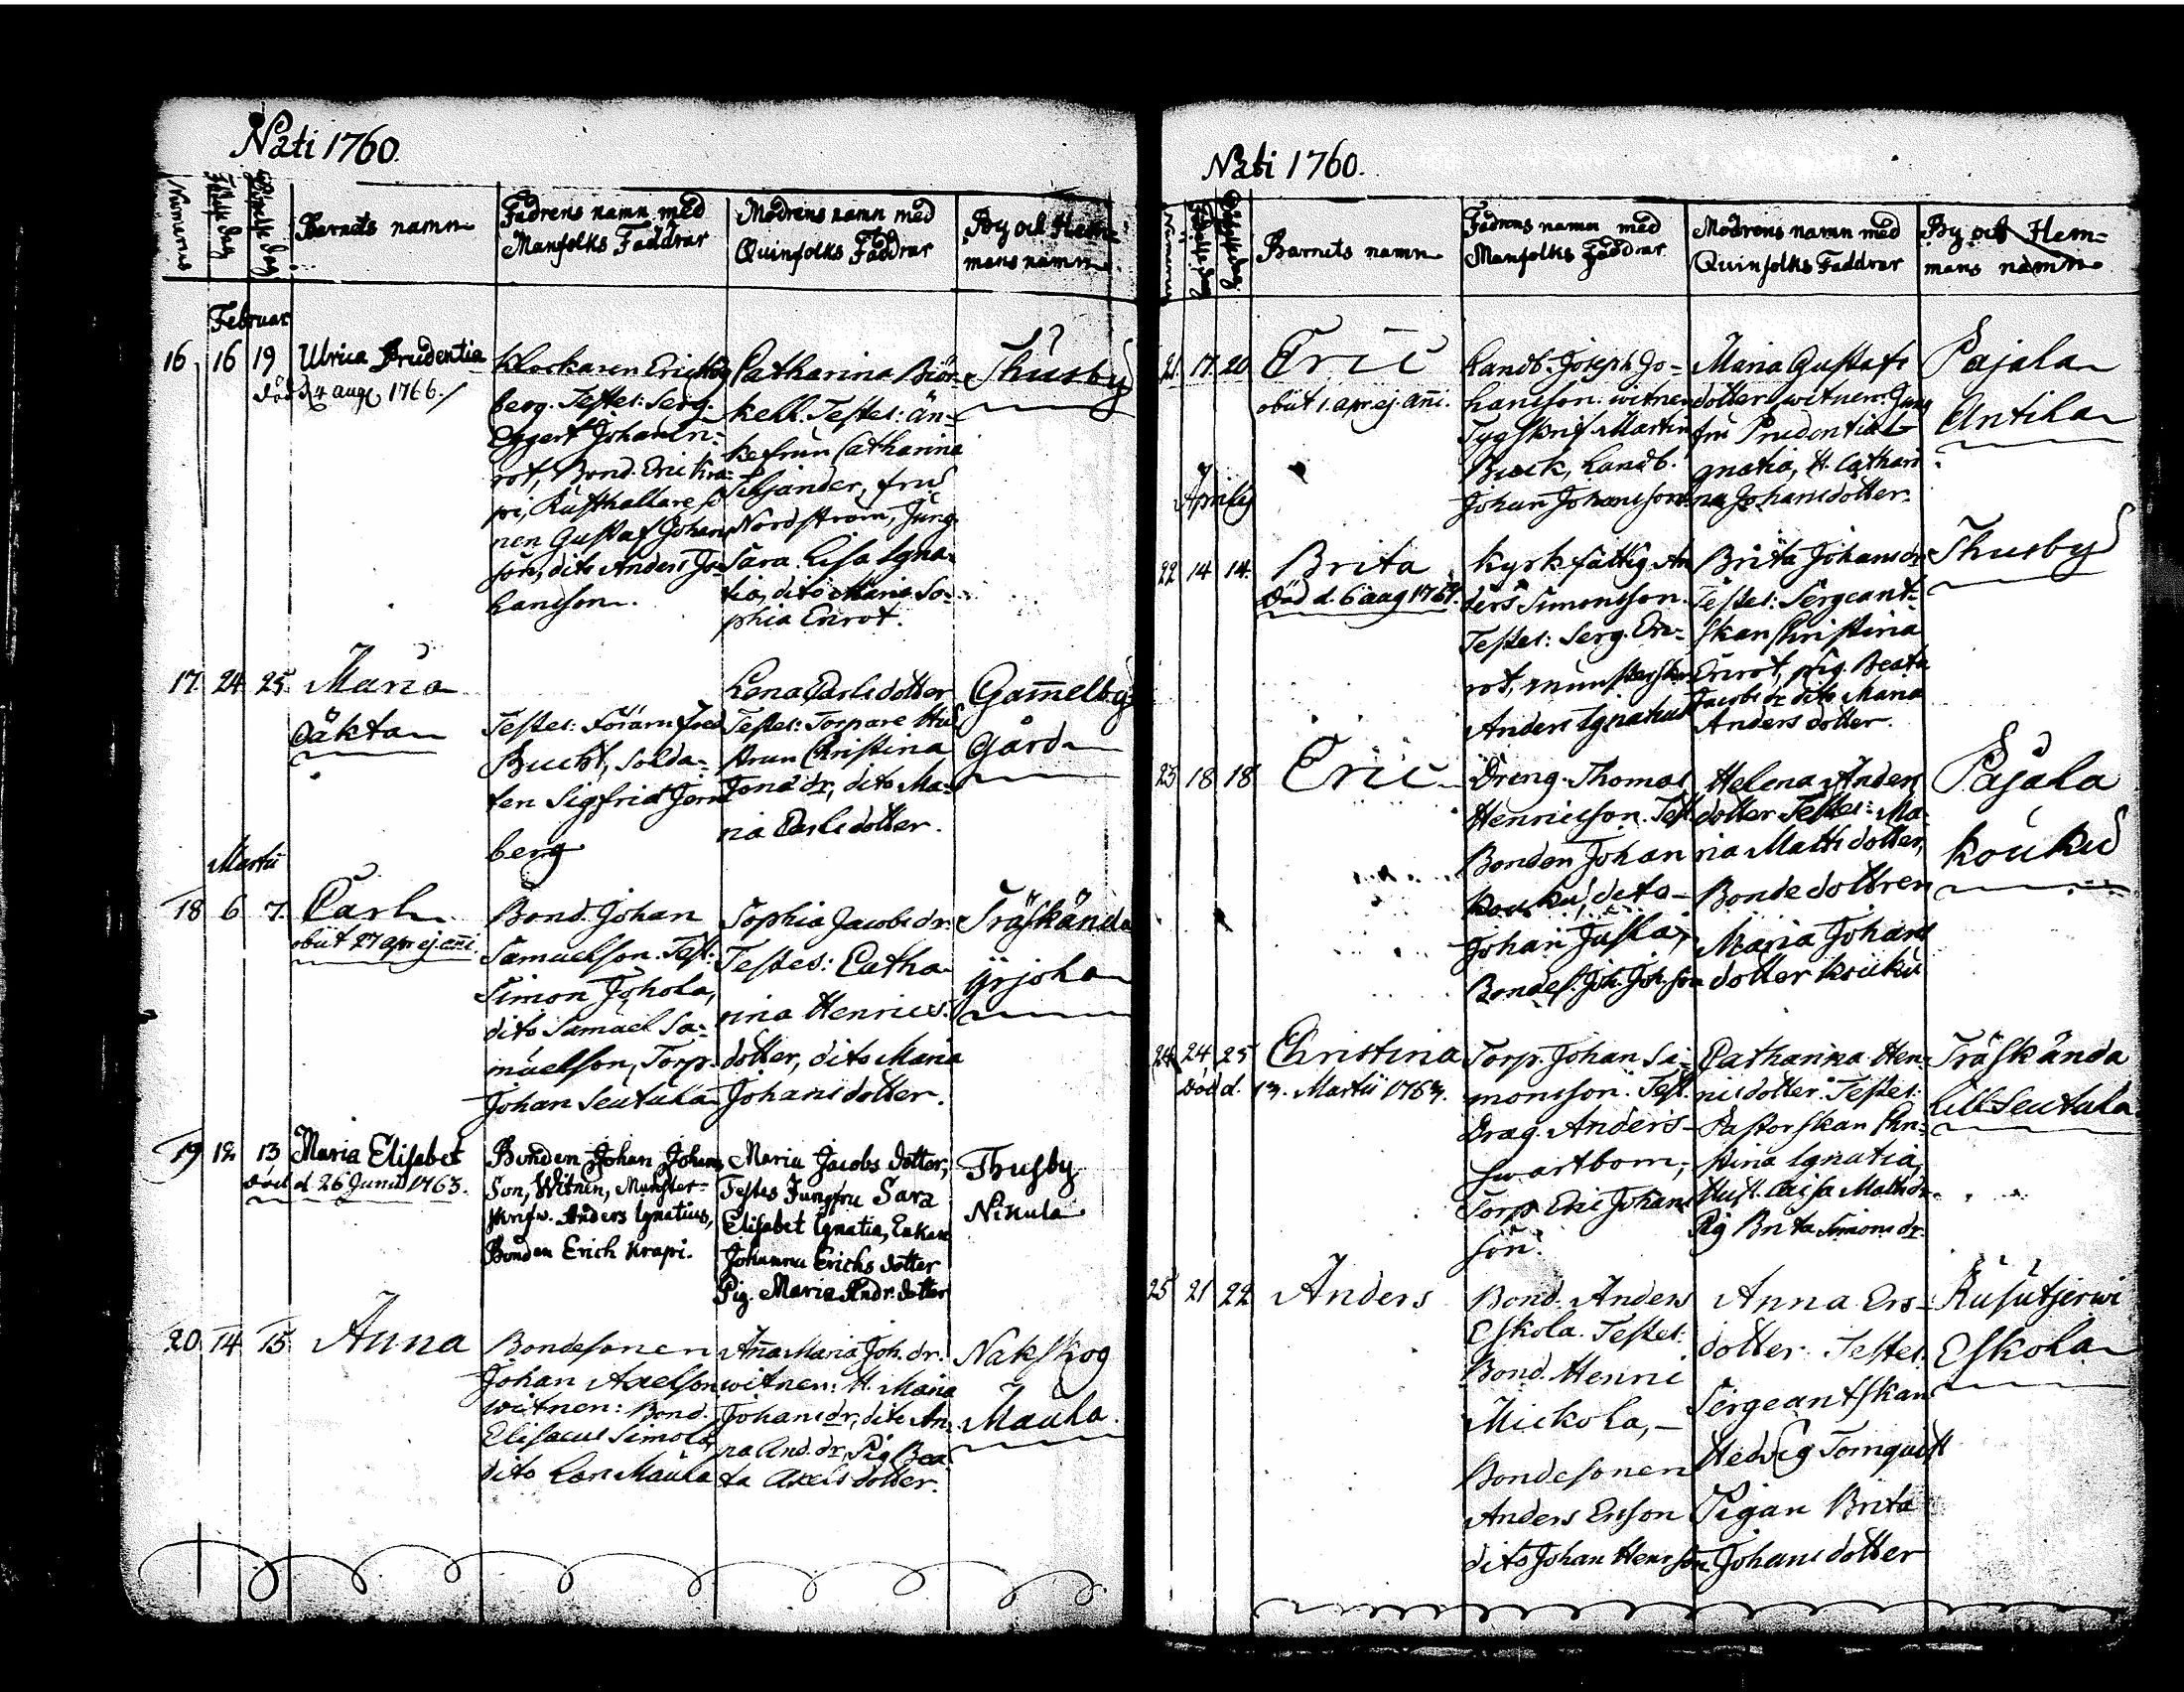 Nati 1760.
Numerus
Födelse dag
Barnets namn
Fadrens namn med
Manfolks Faddrar
Modrens namn med
Quinfolks Faddrar
By och Hem=
mans namn
Februar
16 16 19 Ulrica Prudentia
död d 4 aug 1766.
Klockaren Eric
berg. Testes: Serg.
Eggert Johan En=
rot, Bond. Eric Kra=
pi, Rusthållare so
nen Gustaf Johans
son, dito Anders Jo=
hansson.
Catharina Biör=
kell. Testes: än=
kefrun Catharina
Nordström, Jung.
Sara Lisa Igna=
tia, dito Maria So=
phia Enrot.
Thusby
17 24 25 Maria
Oäkta
Testes:
Bucht, Solda=
ten Sigfrid
berg
Lena Carlsdotter
Testes: Torpare Hus
trun Christina
Jonædr, dito Ma=
ria Carlsdotter.
Gam̄elby
Gård
Martii
18 6 7. Carl
obiit 27 apr. ej. an̄i.
Bond. Johan
Samuelsson. Test:
Simon Johola,
dito Samuel Sa=
muelsson, Torp.
Johan Seutula
Sophia Jacobsdr.
Testes: Catha=
rina Henrics=
dotter, dito Maria
Johansdotter.
Träskända
Yrjola
19 12 13 Maria Elisabet
död d. 26 Junii 1763.
Bonden Johan Johans
Son, Witnen, Munster=
skrifw. Anders Ignatius,
Bonden Erich Krapi.
Maria Jacobs dotter,
Testes Jungfru Sara
Elisabet Ignatia, Enkan
Johanna Erichs dotter
Pig. Maria Andr. dotter
Thusby
Nikula
20 14 15 Anna
Bondesonen
Johan Axelson
witnen: Bond.
Elisaeus Simola,
dito Lars Maula
An̄a Maria Joh. dr.
witnen: H. Maria
Johansdr, dito An=
na And. dr, Pig. Bea
ta Axels dotter.
Nakskog
Maula.
Nati 1760.
Barnets namn
Fadrens namn med
Manfolks Faddrar
Modrens namn med
Quinfolks Faddrar
By och Hem=
mans namn
21. 17. 20 Eric
obiit 1. apr. ej. an̄i.
Landb. Joseph Jo=
hansson. witnen
Tygskrif. Martin
Buck, Landb.
Johan Johansson
Maria Gustafs
dotter. witnen: Jung
fru Prudentia I=
gnatia, H. Cathari
na Johansdotter.
Pajala
Antila
Aprilis
22 14 14. Brita
Död d. 6 aug 1767.
Kyrkfattig An
ders Simonsson.
Testes: Serg. En=
rot, munsterskr.
Anders Ignatius
Brita Johansdr
Testes: Sergeant=
skan Christina
Enrot, pig. Beata
Jacobs dr dito Maria
Anders dotter.
Thusby
23 18 18 Eric
Dreng. Thomas
Henricsson. Test.
Bonden Johan
Kouku, dito
Johan Jusla,
Bondes. Joh. Joh.son
Helena Anders
dotter Testes: Ma=
ria Matts dotter,
Bondedottren
Maria Johans
dotter Kouku
Pajala
Kouku
24 24 25 Christina
Död d. 13. Martii 1763.
Torp. Johan Si=
monsson. Test.
Drag. Anders
Swartbom,
Torp. Eric Johans
son.
Catharina Hen=
ricsdotter. Testes:
Pastorskan Chri=
stina Ignatia,
Hust. Caisa Mattsdr
Pig Brita Simons dr.
Träskända
Lill Seutula
25 21 22 Anders
Bond. Anders
Eskola. Testes:
Bond. Henric
Mickola,
Bondesonen
Anders Ersson
dito Johan Henrsson
Anna Ers=
dotter. Testes.
Sergeantskan
Hedvig Tornquist
Pigan Brita
Johansdotter
Rusutjerwi
Eskola